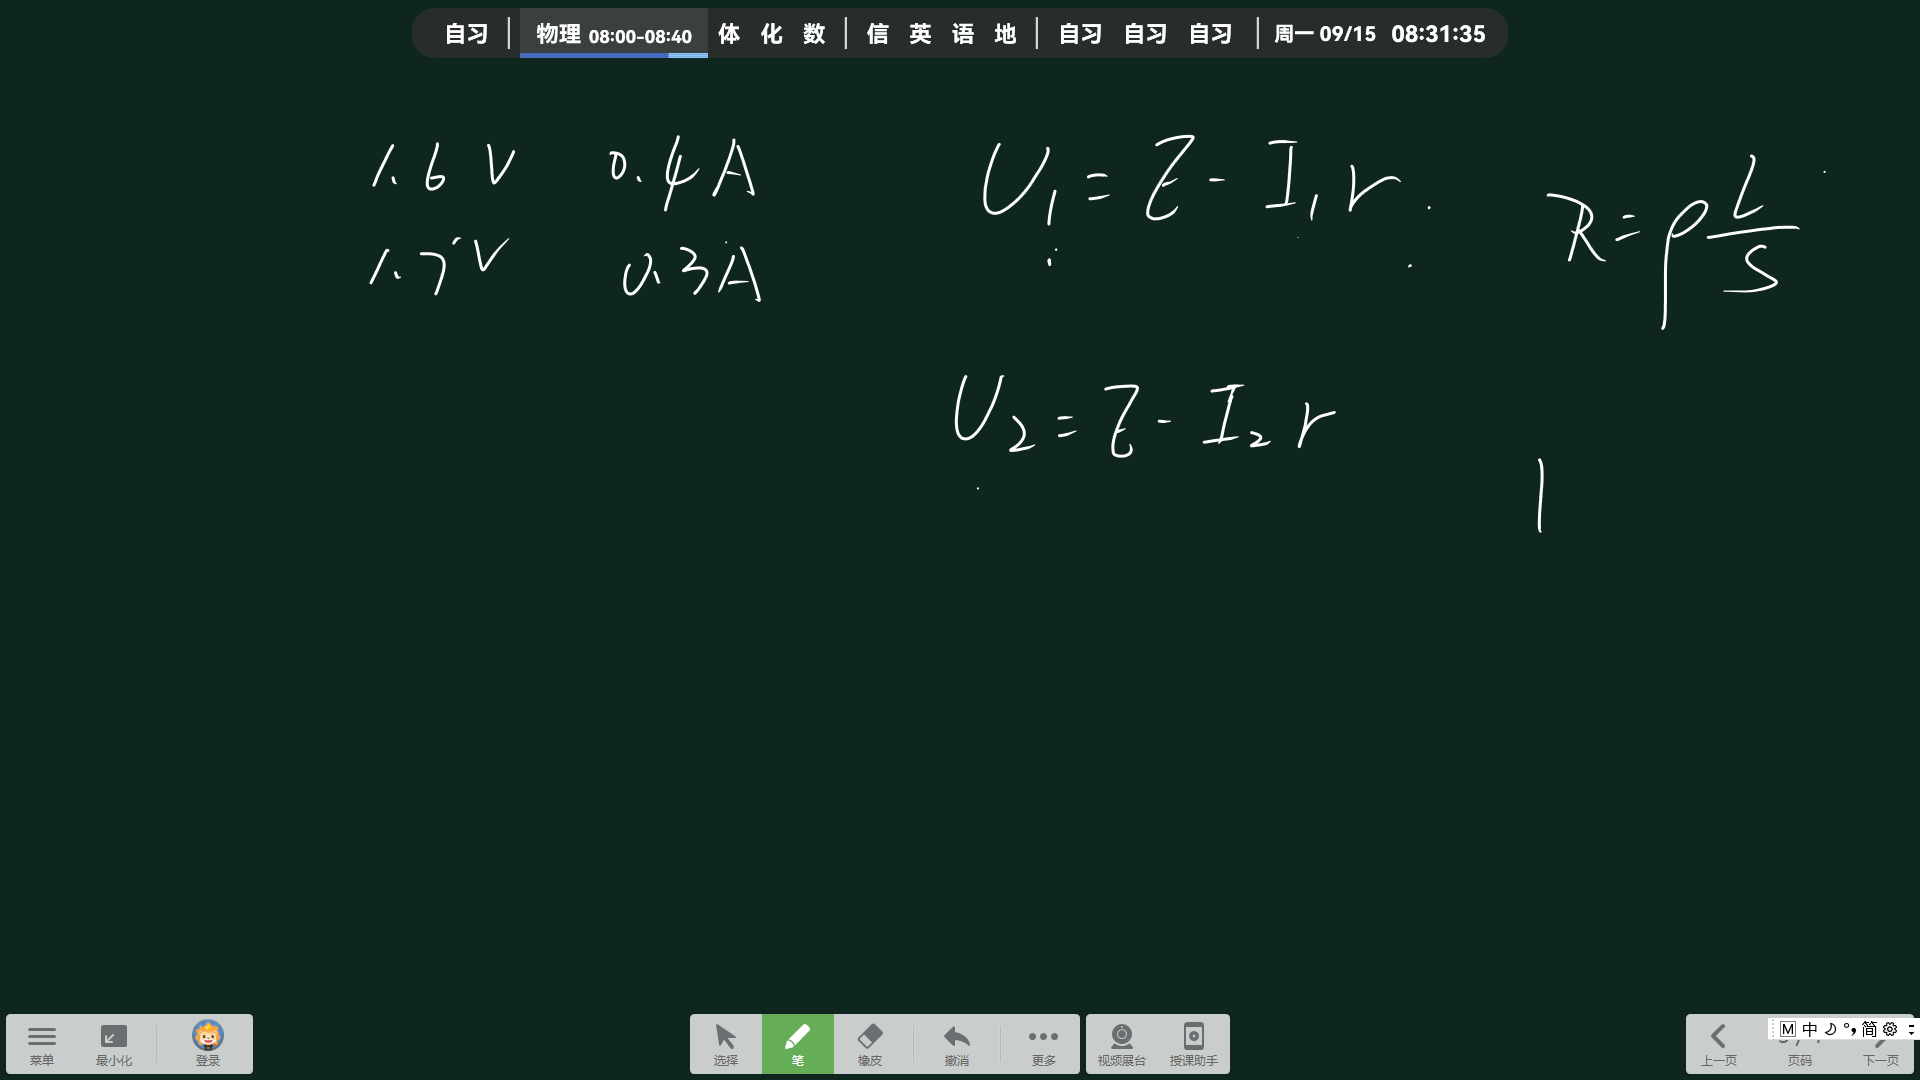 自习 | 物理 08:00-08:40 体 化 数 | 信 英 语 地 | 自习 自习 自习 | 周一 09/15 08:31:35
1.6 V 0.4 A
1.7 V 0.3 A
U₁ = E - I₁ r
R = ρ L/S
U₂ = E - I₂ r
菜单 最小化 登录
选择 笔 橡皮 撤消 更多
视频展台 授课助手
M 中 简
上一页 页码 下一页